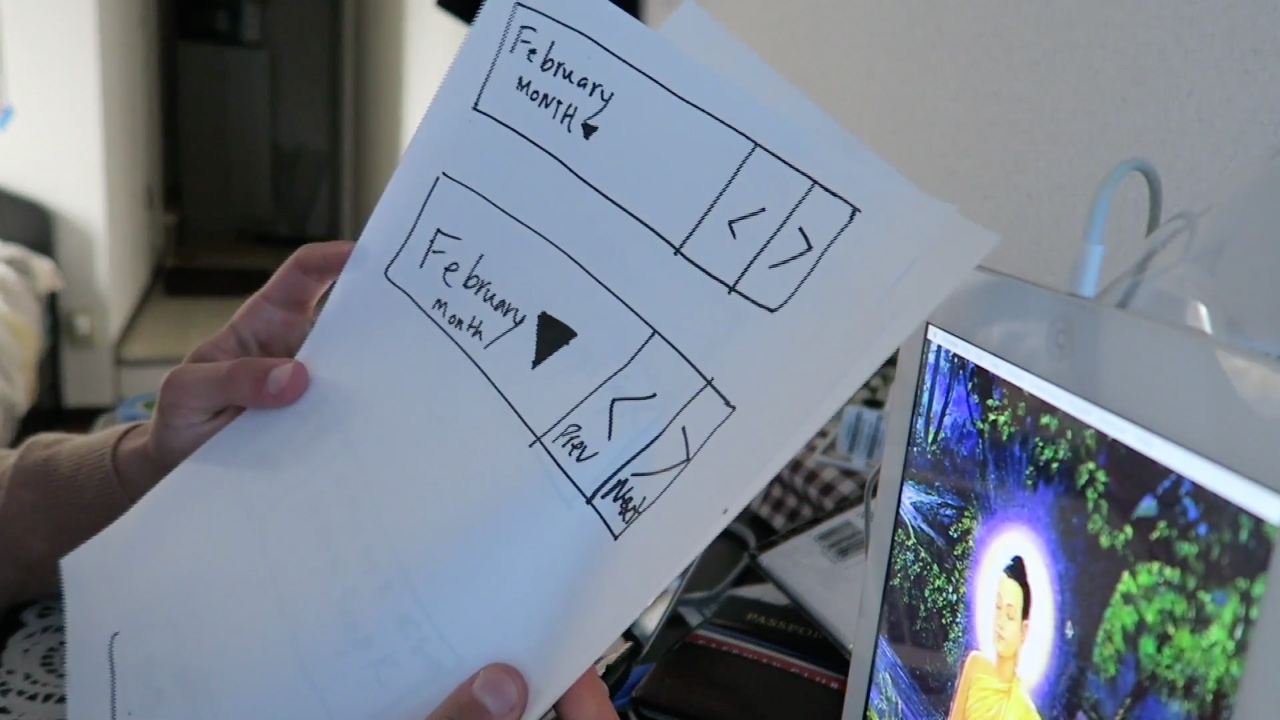 February
MONTH
<
>
February
Month
<
Prev
>
Next
PASSPO